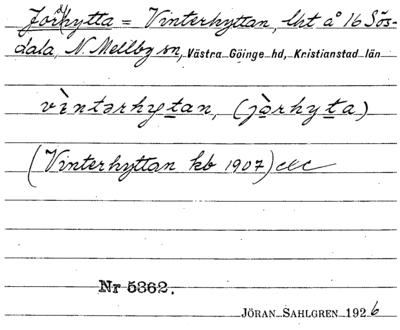 Jordhytta = Vinterhyttan, lht å 16 Sös-
dala, N. Mellby sn, Västra Göinge hd, Kristianstad län
vìntərhytan, (jòrhyta)
(Vinterhyttan kb 1907)
Nr 5362.
JÖRAN SAHLGREN 1926